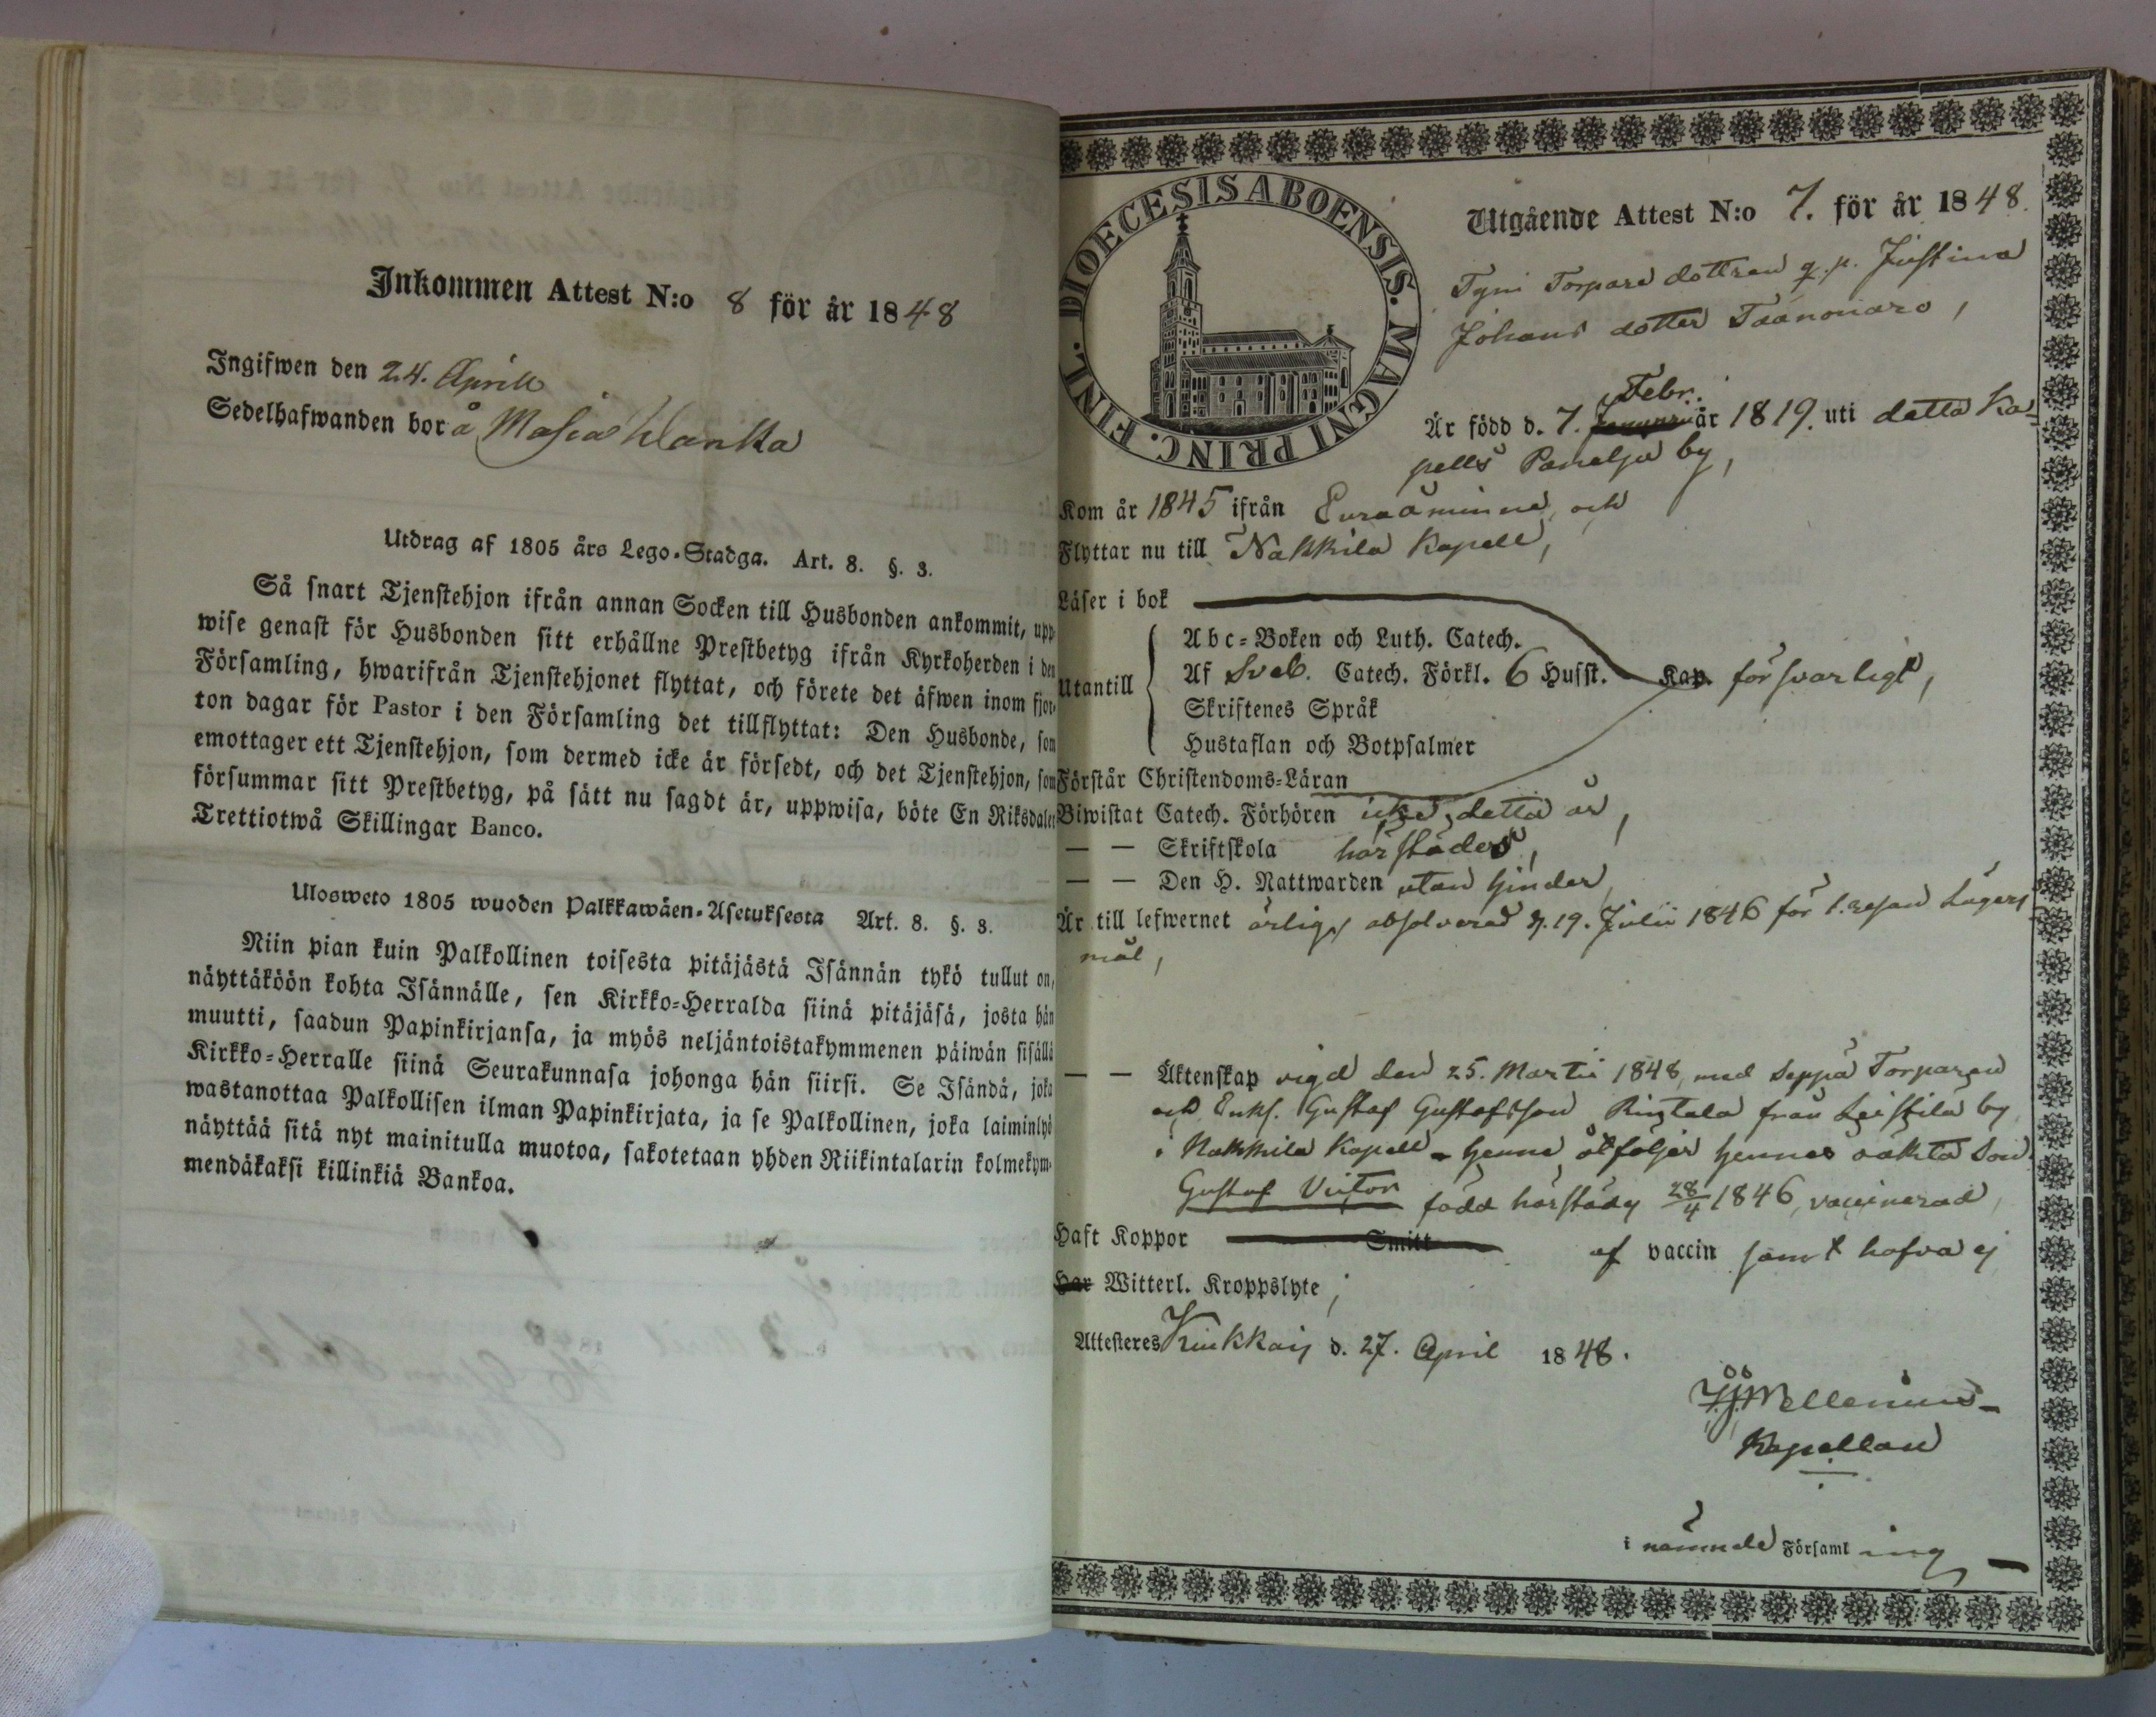 Inkommen Attest N:o 8 för år 1848
Ingifwen den 24. Aprill
Sedelhafwanden bor å Masia Wanka
Utdrag af 1805 års Lego-Stadga. Art. 8. §. 3.
Så snart Tjenstehjon ifrån annan Socken till Husbonden ankommit, upp-
wise genast för Husbonden sitt erhållne Prestbetyg ifrån Kyrkoherden i den
Församling, hwarifrån Tjenstehjonet flyttat, och förete det äfwen inom fjor-
ton dagar för Pastor i den Församling det tillflyttat: Den Husbonde, som
emottager ett Tjenstehjon, som dermed icke är försedt, och det Tjenstehjon, som
försummar sitt Prestbetyg, på sätt nu sagdt är, uppwisa, böte En Riksdaler
Trettiotwå Skillingar Banco.
Ulosweto 1805 wuoden Palkkawäen-Asetuksesta Art. 8. §. 3.
Niin pian kuin Palkollinen toisesta pitäjästä Isännän tykö tullut on,
näyttäköön kohta Isännälle, sen Kirkko-Herralda siinä pitäjäsä, josta hän
muutti, saadun Papinkirjansa, ja myös neljäntoistakymmenen päiwän sisällä
Kirkko-Herralle siinä Seurakunnasa johonga hän siirsi. Se Isändä, joka
wastanottaa Palkollisen ilman Papinkirjata, ja se Palkollinen, joka laiminlyö
näyttää sitä nyt mainitulla muotoa, sakotetaan yhden Riikintalarin kolmekym-
mendäkaksi killinkiä Bankoa.
DIOECESIS ABOENSIS. MAGNI PRINC. FINL.
Utgående Attest N:o 7. för år 1848.
Tyni Torpare dottren q.p. Justina
Johans dotter Täänonaro,
Febr.
Är född d. 7. Januarii år 1819. uti detta Ka-
pells Panelja by,
Kom år 1845 ifrån Euraåminne, och
Flyttar nu till Nakkila Kapell,
Läser i bok
Abc-Boken och Luth. Catech.
Utantill Af Sveb. Catech. Förkl. 6 Husst. Kap. försvarligt,
Skriftenes Språk
Hustaflan och Botpsalmer
Förstår Christendoms-Läran
Biwistat Catech. Förhören icke detta år,
— — Skriftskola härstädes,
— — Den H. Nattwarden utan hinder,
Är till lefwernet ärlig, absolverad d. 19. Julii 1846 för 1. resan Lägers-
mål,
— — Äktenskap vigd den 25. Martii 1848, med Seppä Torparen
och Enkl. Gustaf Gustafsson Rintala från Leistilä by
i Nakkila Kapell - henne åtföljer hennes oäkta Son
Gustaf Victor född härstädes 28/4 1846, vaccinerad,
Haft Koppor Smitt af vaccin samt hafva ej
Har Witterl. Kroppslyte,
Attesteres Kiukkais d. 27. April 1848.
Mellenius
Kapellan
i nämnde Församling